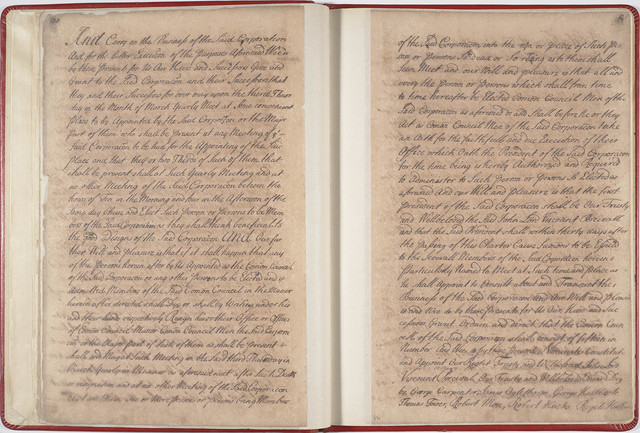 And Carry on the Business of the Said Corporation
And for the better Execution of the Purposes Aforesaid We do
by these Presents for Us Our Heirs and Successors Give and
Grant to the Said Corporation and their Successors that
they and their Successors for ever may upon the third Thurs
day in the Month of March Yearly Meet at Some convenient
place to be Appointed by the Said Corporation or the Major
Part of them who shall be present at any Meeting of ye
Said Corporation to be had for the Appointing of the Said
Place and that they or two Thirds of Such of them that
shall be present shall at Such Yearly Meeting and at
no other Meeting of the Said Corporation between the
hours of Ten in the Morning and four in the Afternoon of the
Same day Chuse and Elect Such Person or Persons to be Mem
bers of the Said Corporation as they shall think beneficial to
the Good Designs of the Said Corporation And Our far
ther Will and pleasure is that if it shall happen that any
of the Persons herein after by Us Appointed as the Common Council
of the Said Corporation or any other Persons to be Elected and
Admitted Members of the Said Common Council in the Manner
herein after directed shall Dye or shall by Writing under his
and their hands respectively Resign his or their Office or Offices
of Common Council Man or Common Council Men the Said Corpora
tion or the Major part of Such of them as shall be present
shall and May at Such Meeting on the Said third Thursday in
March Yearly in Manner as aforesaid next after Such Death
or resignation and at no other Meeting of the Said Corporation
Elect one or more person or persons being Members
of the Said Corporation into the room or place of Such Per
son or Persons So Dead or So resigning as to them shall
Seem Meet and our Will and pleasure is that all and
every the person or Persons which shall from time
to time hereafter be Elected Common Council Men of the
Said Corporation as aforesaid do and shall before he or they
Act as Common Council Men of the Said Corporation take
an Oath for the faithfull and due Execution of their
Office which Oath the President of the Said Corporation
for the time being is hereby Authorised and required
to Administer to Such Person or Persons So Elected as
aforesaid And our Will and Pleasure is that the first
President of the Said Corporation shall be Our Trusty
and Wellbeloved the Said John Lord Viscount Percivall
and that the Said President shall within thirty days after
the passing of this Charter Cause Summons to be Issued
to the Severall Members of the Said Corporation herein
Particularly Named to Meet at Such time and place as
he shall Appoint to Consult about and Transact the
Business of the Said Corporation and Our Will and Pleasure
is and We do by these Presents for Us Our Heirs and Suc
cessors Grant Ordain and direct that the Common Coun
cil of the Said Corporation shall Consist of fifteen in
Number And We do by these Presents Nominate Constitute
and Appoint Our Right Trusty and Wellbeloved John Lord
Viscount Percival Our Trusty and Wellbeloved Edward Dig
by George Carpenter James Oglethorpe George Heathcote
Thomas Tower, Robert More, Robert Hucks